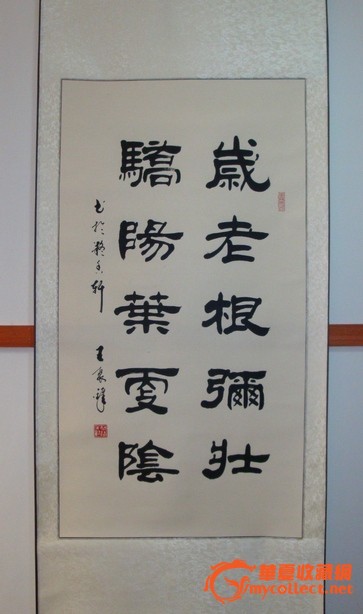 歲老根彌壯
驕陽葉更陰
书於 香轩
王
華夏收藏網
mycollect.net